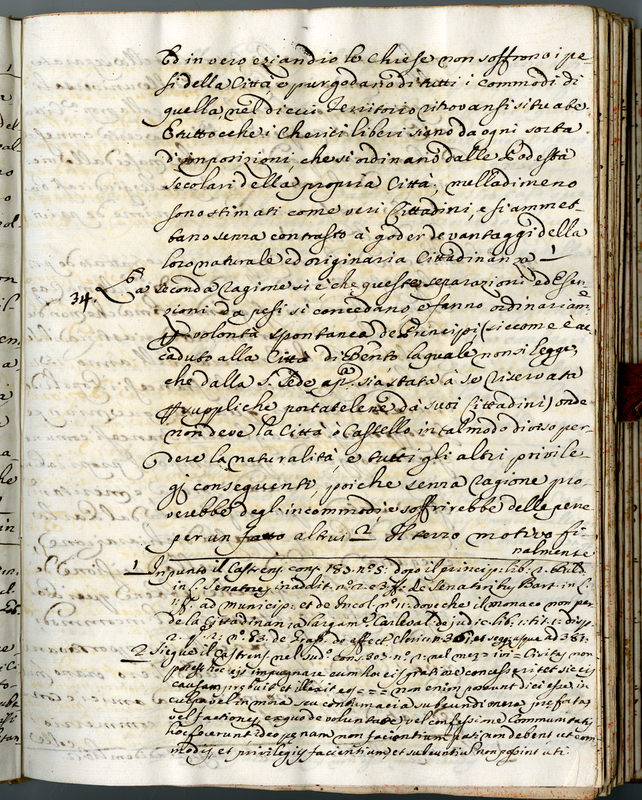 Ed in vero eziandio le Chiese non soffrono i pe-
si della Città e pur godano di tutti i commodi di
quella nel di cui Territorio ritrovansi situate.
E tutto che i Cherici liberi siano da ogni sorta
d'imposizioni, che si ordinano dalle Podestà
secolari della propria Città, nulladimeno
sono stimati come veri Cittadini, e si ammet-
tano senza contrasto à goder de vantaggi della
loro naturale ed originaria Cittadinanza 1
34. La seconda ragione si è che queste separazioni ed Esen-
zioni da pesi si concedano e fanno ordinariam.e
p volontà spontanea de Principi (siccome è ac-
caduto alla Città di Bento la quale non si legge,
che dalla S. Sede ap. sia stata à se riservata
p suppliche portatelene da suoi Cittadini) onde
non deve la Città ò Castello in tal modo diviso per-
dere la naturalità, e tutti gli altri privile-
gj conseguenti, poiche senza ragione pro-
verebbe degl'incommodi e soffrirebbe delle pene
per un fatto altrui 2 Il terzo motivo fi-
nalmente
1 In punto il Castrens. cons. 183. nº 5: dopo il princip: lib. 2.
in L. Senatores in addit. nº 2. e 3. ff. de Senatorib. Bart. in L.
1. ff. ad Municip: et de Incol. nº 11: dove che il monaco non per
de la Cittadinanza Largam. Carleval de judic. lib. 1. tit. 1: disp.
2. q. 2: nº 83. de
2 Siegue il Castrens. nel Sud. cons. 303. nº 2: nel = Civitas non
potest hoc ejs impugnare cum hoc ejs gratiose concesserit et sic ejs
causam et = = = non enim possunt dici esse in
culpa vel in mora seu contumacia subeundi onera
vel factiones ex quo de voluntate vel Communitatis
hoc fecerunt ideo penam non facientium pati non debent ut com
modis, et privilegijs facientium, et subeuntium non possint uti.